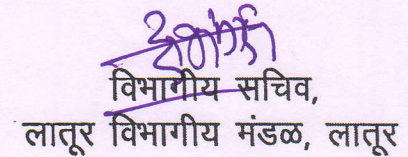 विभागीय सचिव,
लातूर विभागीय मंडळ, लातूर